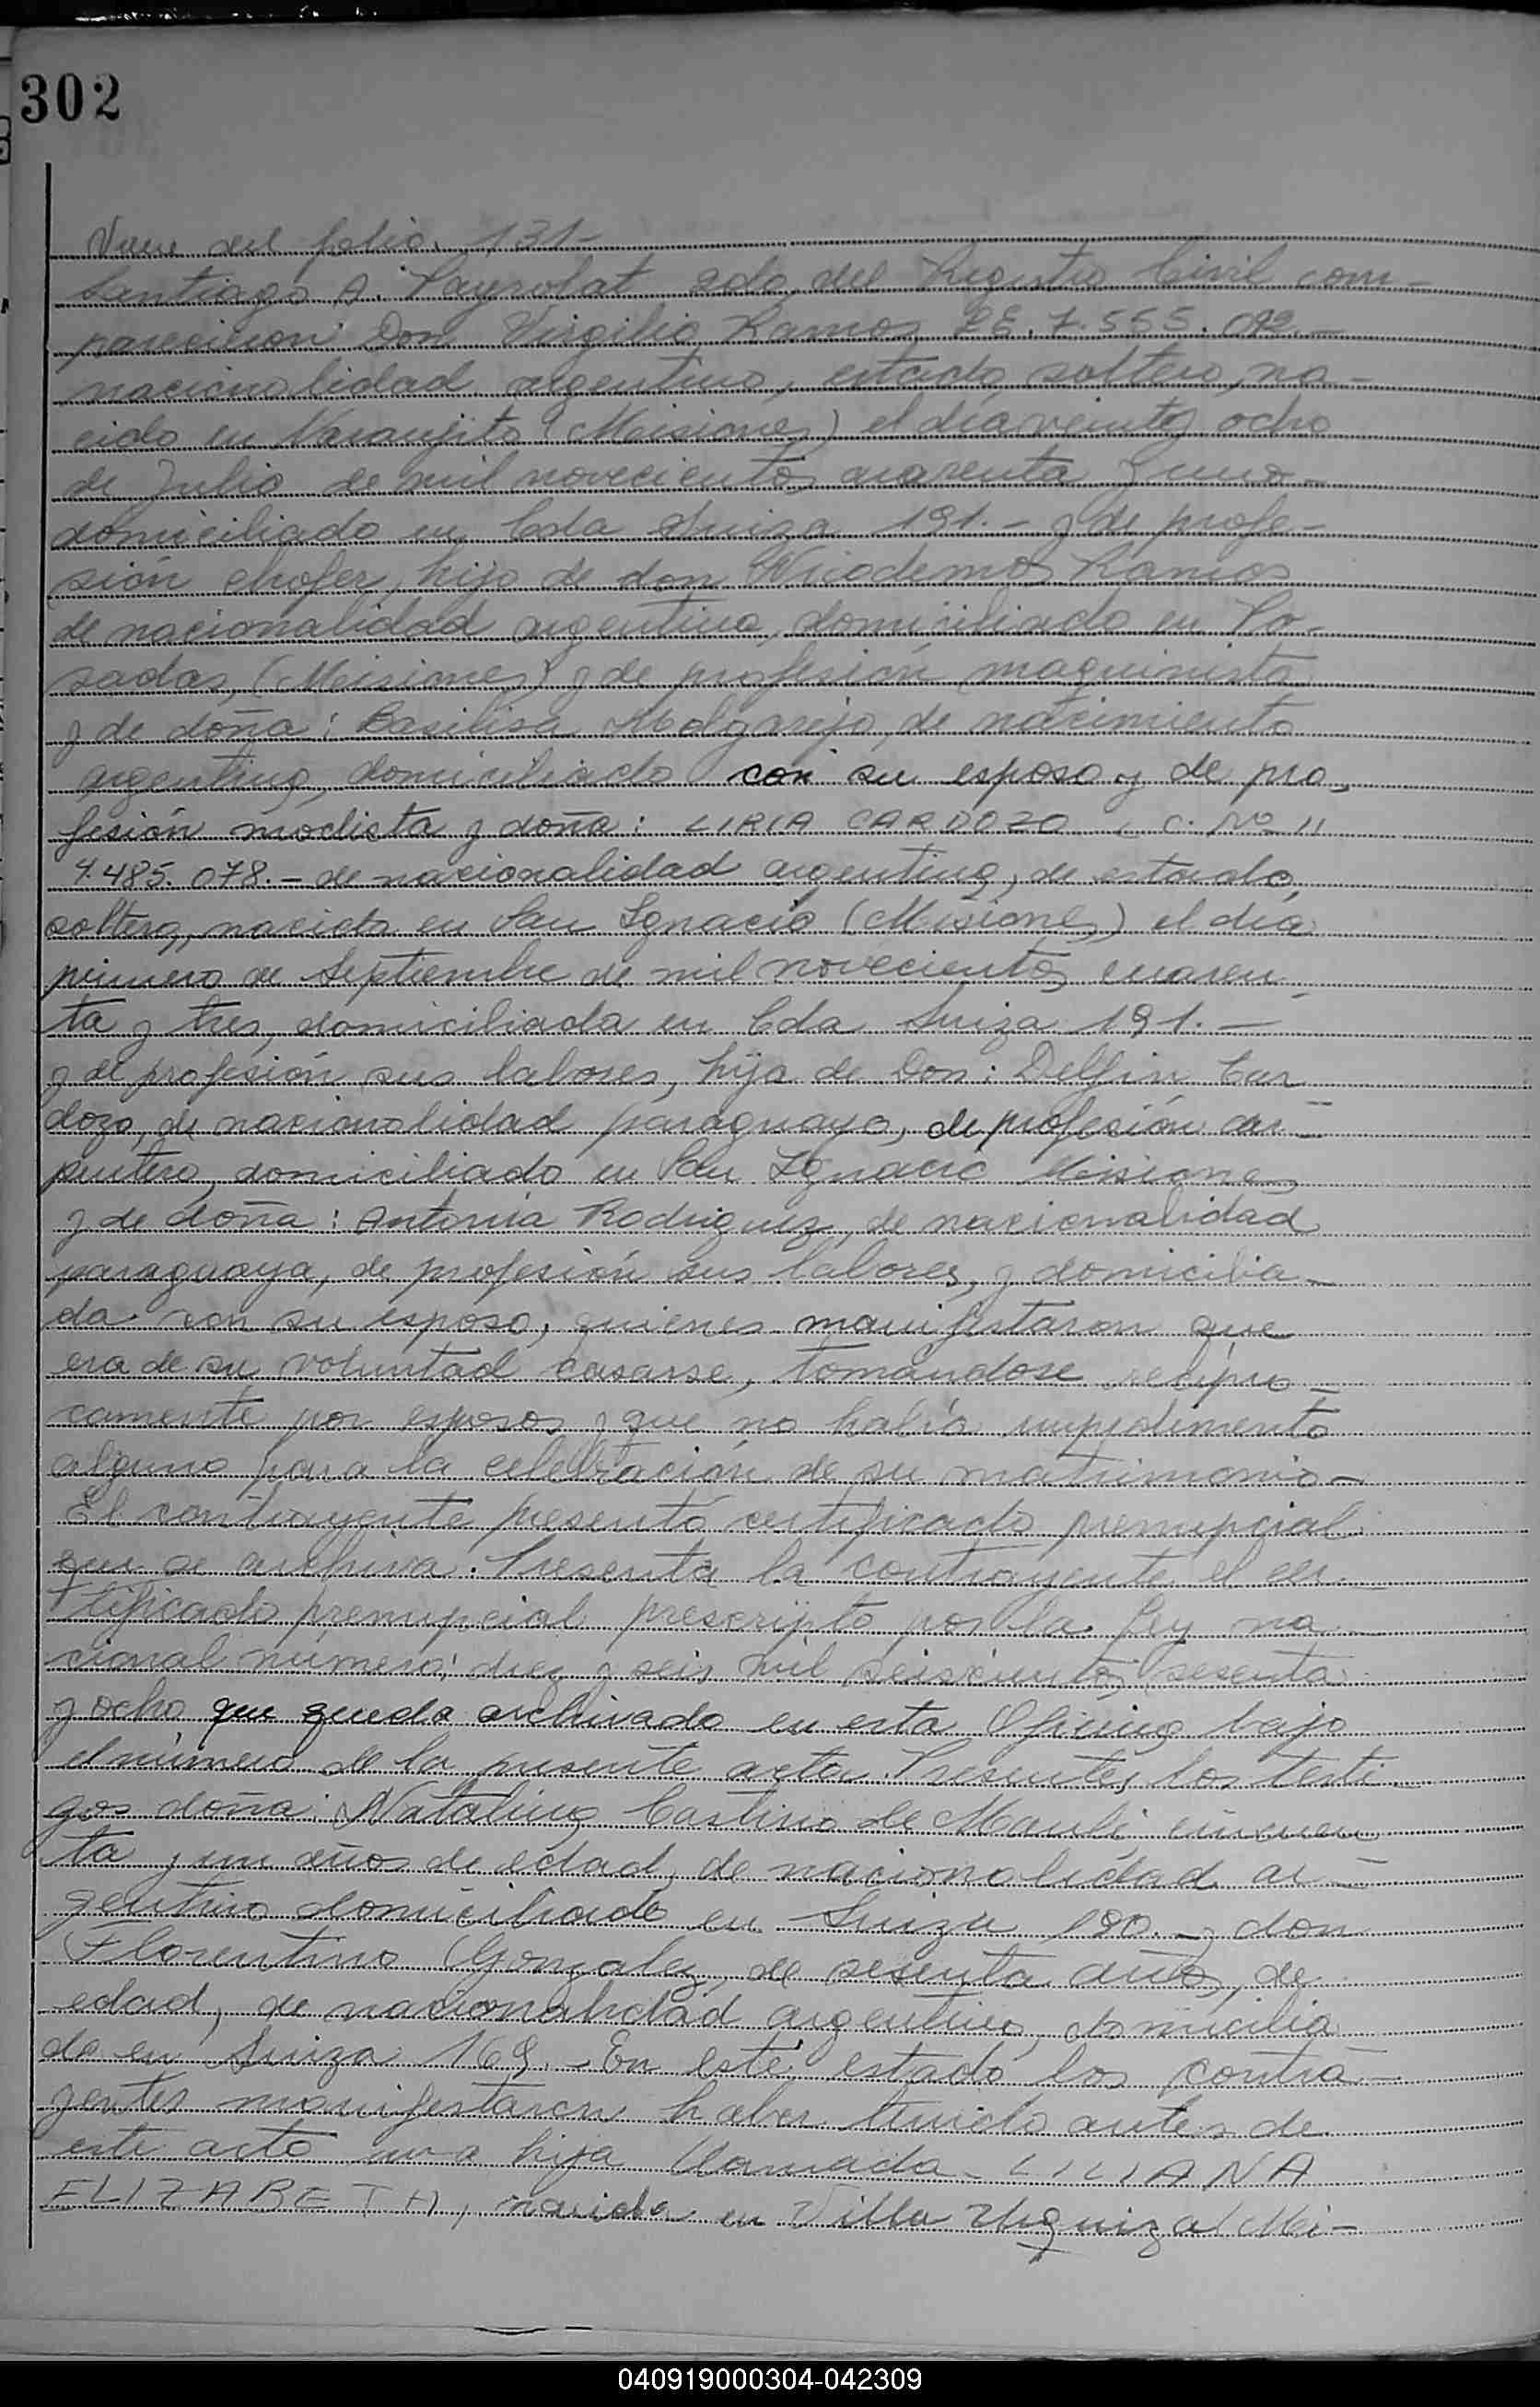 302
Viene del folio. 131-
Santiago A. Payrolat 2do del Registro Civil com-
parecieron Don Virgilio Ramos LE. 7.555.092.-
nacionalidad argentino, estado soltero, na-
cido en Naranjito (Misiones) el día veinte y ocho
de Julio de mil novecientos cuarenta y uno-
domiciliado en Cda Suiza 191.- y de profe-
sión chofer, hijo de don Nicodemos Ramos
de nacionalidad argentino, domiciliado en Po-
sadas, (Misiones) y de profesión maquinista
y de doña: Basilisa Melgarejo, de nacimiento
argentina, domiciliado con su esposo y de pro-
fesión modista y doña: LIRIA CARDOZO L C. Nº 11
4.485.078.- de nacionalidad argentina, de estado
soltera, nacida en San Ignacio (Misiones) el día
primero de Septiembre de mil novecientos cuaren-
ta y tres, domiciliada en Cda Suiza 191.-
y de profesión sus labores, hija de Don: Delfin Car-
dozo, de nacionalidad paraguayo, de profesión car-
pintero, domiciliado en San Ignacio Misiones
y de doña: Antonia Rodriguez, de nacionalidad
paraguaya, de profesión sus labores, y domicilia-
da con su esposo, quienes manifestaron que
era de su voluntad casarse, tomandose recipro-
camente por esposos y que no había impedimento
alguno para la celebración de su matrimonio-
El contrayente presentó certificado prenupcial
que se archiva. Presenta la contrayente el cer-
tificado prenupcial prescripto por la Ley na-
cional número: diez y seis mil seiscientos sesenta
y ocho que queda archivado en esta Oficina bajo
el número de la presente acta. Presentes los testi-
gos doña: Natalina Castino de Mauli cincuen-
ta y un años de edad, de nacionalidad ar-
gentino domiciliado en Suiza 190.- y don
Florentino Gonzalez, de sesenta años, de
edad, de nacionalidad argentino, domicilia
do en Suiza 169.- En este estado los contra-
yentes manifestaron haber tenido antes de
este acto una hija llamada- LILIANA
ELIZABETH, nacida en Villa Urquiza (Mi-
040919000304-042309